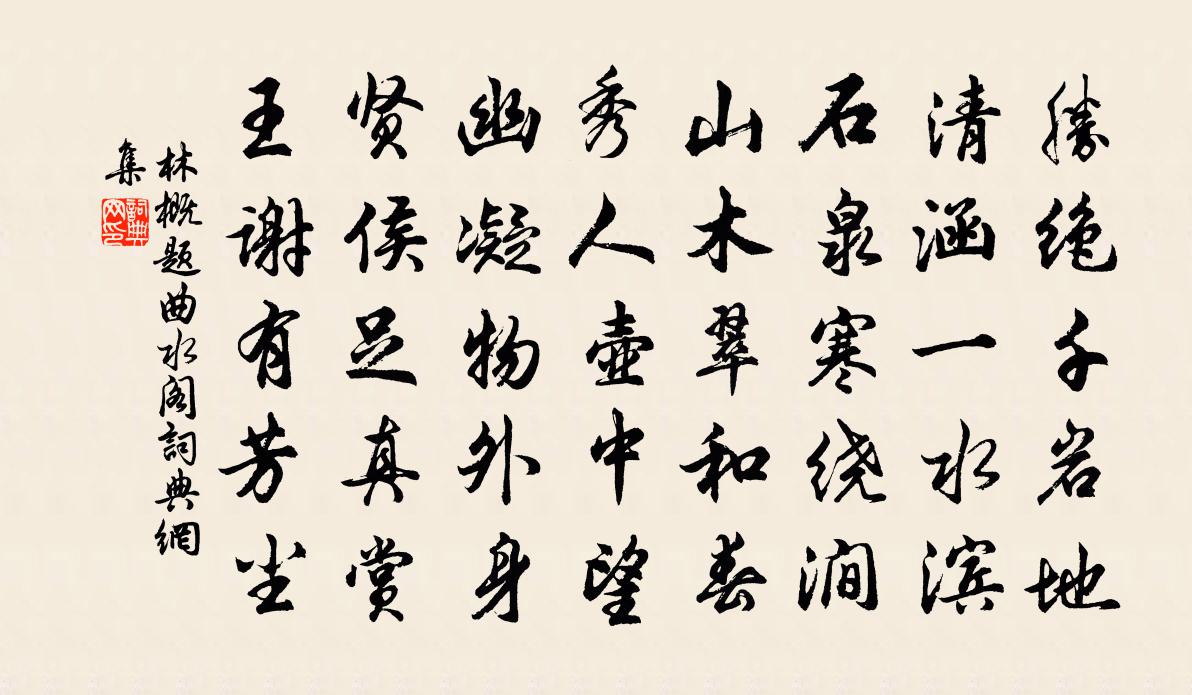 勝绝千岩地
清涵一水滨
石泉寒绕涧
山木翠和春
秀人壶中望
幽凝物外身
贤侯足真赏
王谢有芳尘
林概题曲水阁詞典網
集
詞典
网印